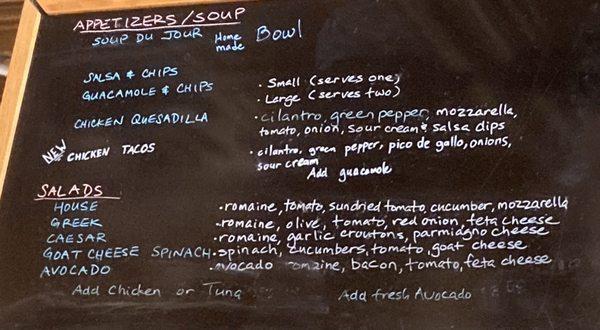 APPETIZERS/SOUP
SOUP DU JOUR Home made Bowl
SALSA & CHIPS · Small (serves one)
GUACAMOLE & CHIPS · Large (serves two)
CHICKEN QUESADILLA · cilantro, green pepper, mozzarella,
tomato, onion, sour cream & salsa dips
NEW CHICKEN TACOS · cilantro, green pepper, pico de gallo, onions,
sour cream
Add guacamole
SALADS
HOUSE · romaine, tomato, sundried tomato, cucumber, mozzarella
GREEK · romaine, olive, tomato, red onion, feta cheese
CAESAR · romaine, garlic croutons, parmiagno cheese
GOAT CHEESE SPINACH · spinach, cucumbers, tomato, goat cheese
AVOCADO · avocado romaine, bacon, tomato, feta cheese
Add Chicken or Tuna Add fresh Avocado